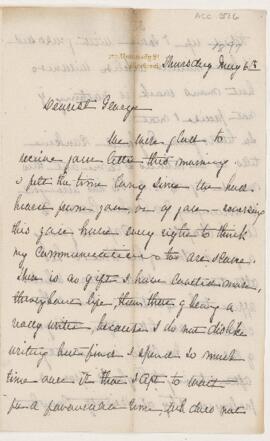 ACC 5516
1897
Thursday May 6th
Dearest George
We were glad to
receive your letter this morning
& felt the time long since we had
heard from you or of you
this you have every right to think
my
There is no gift I have more,
throughout life, than that of being a
ready writer, because I do not dislike
writing but find I spend so much
time over it that I apt to wait
for a time which does not